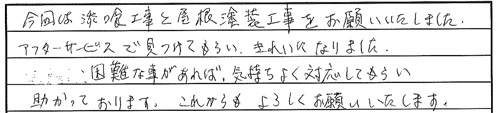 今回は漆喰工事と屋根塗装工事をお願いいたしました。
アフターサービスで見つけてもらい、きれいになりました。
困難な事があれば、気持ちよく対応してもらい
助かっております。これからもよろしくお願いいたします。